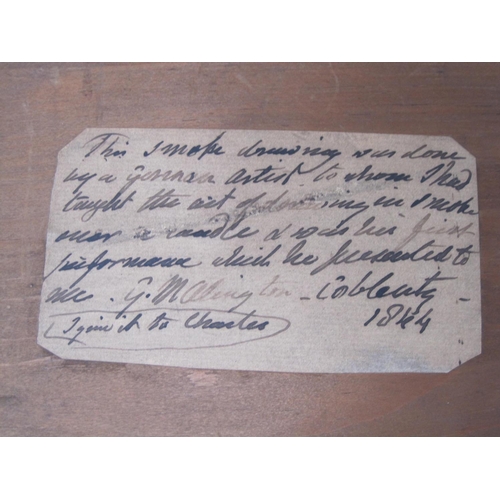 This smoke drawing was done
by a German artist to whom I had
taught the art of drawing in smoke
over a candle & was his first
performance which he presented to
me. G. M
I give it to Charles 1844